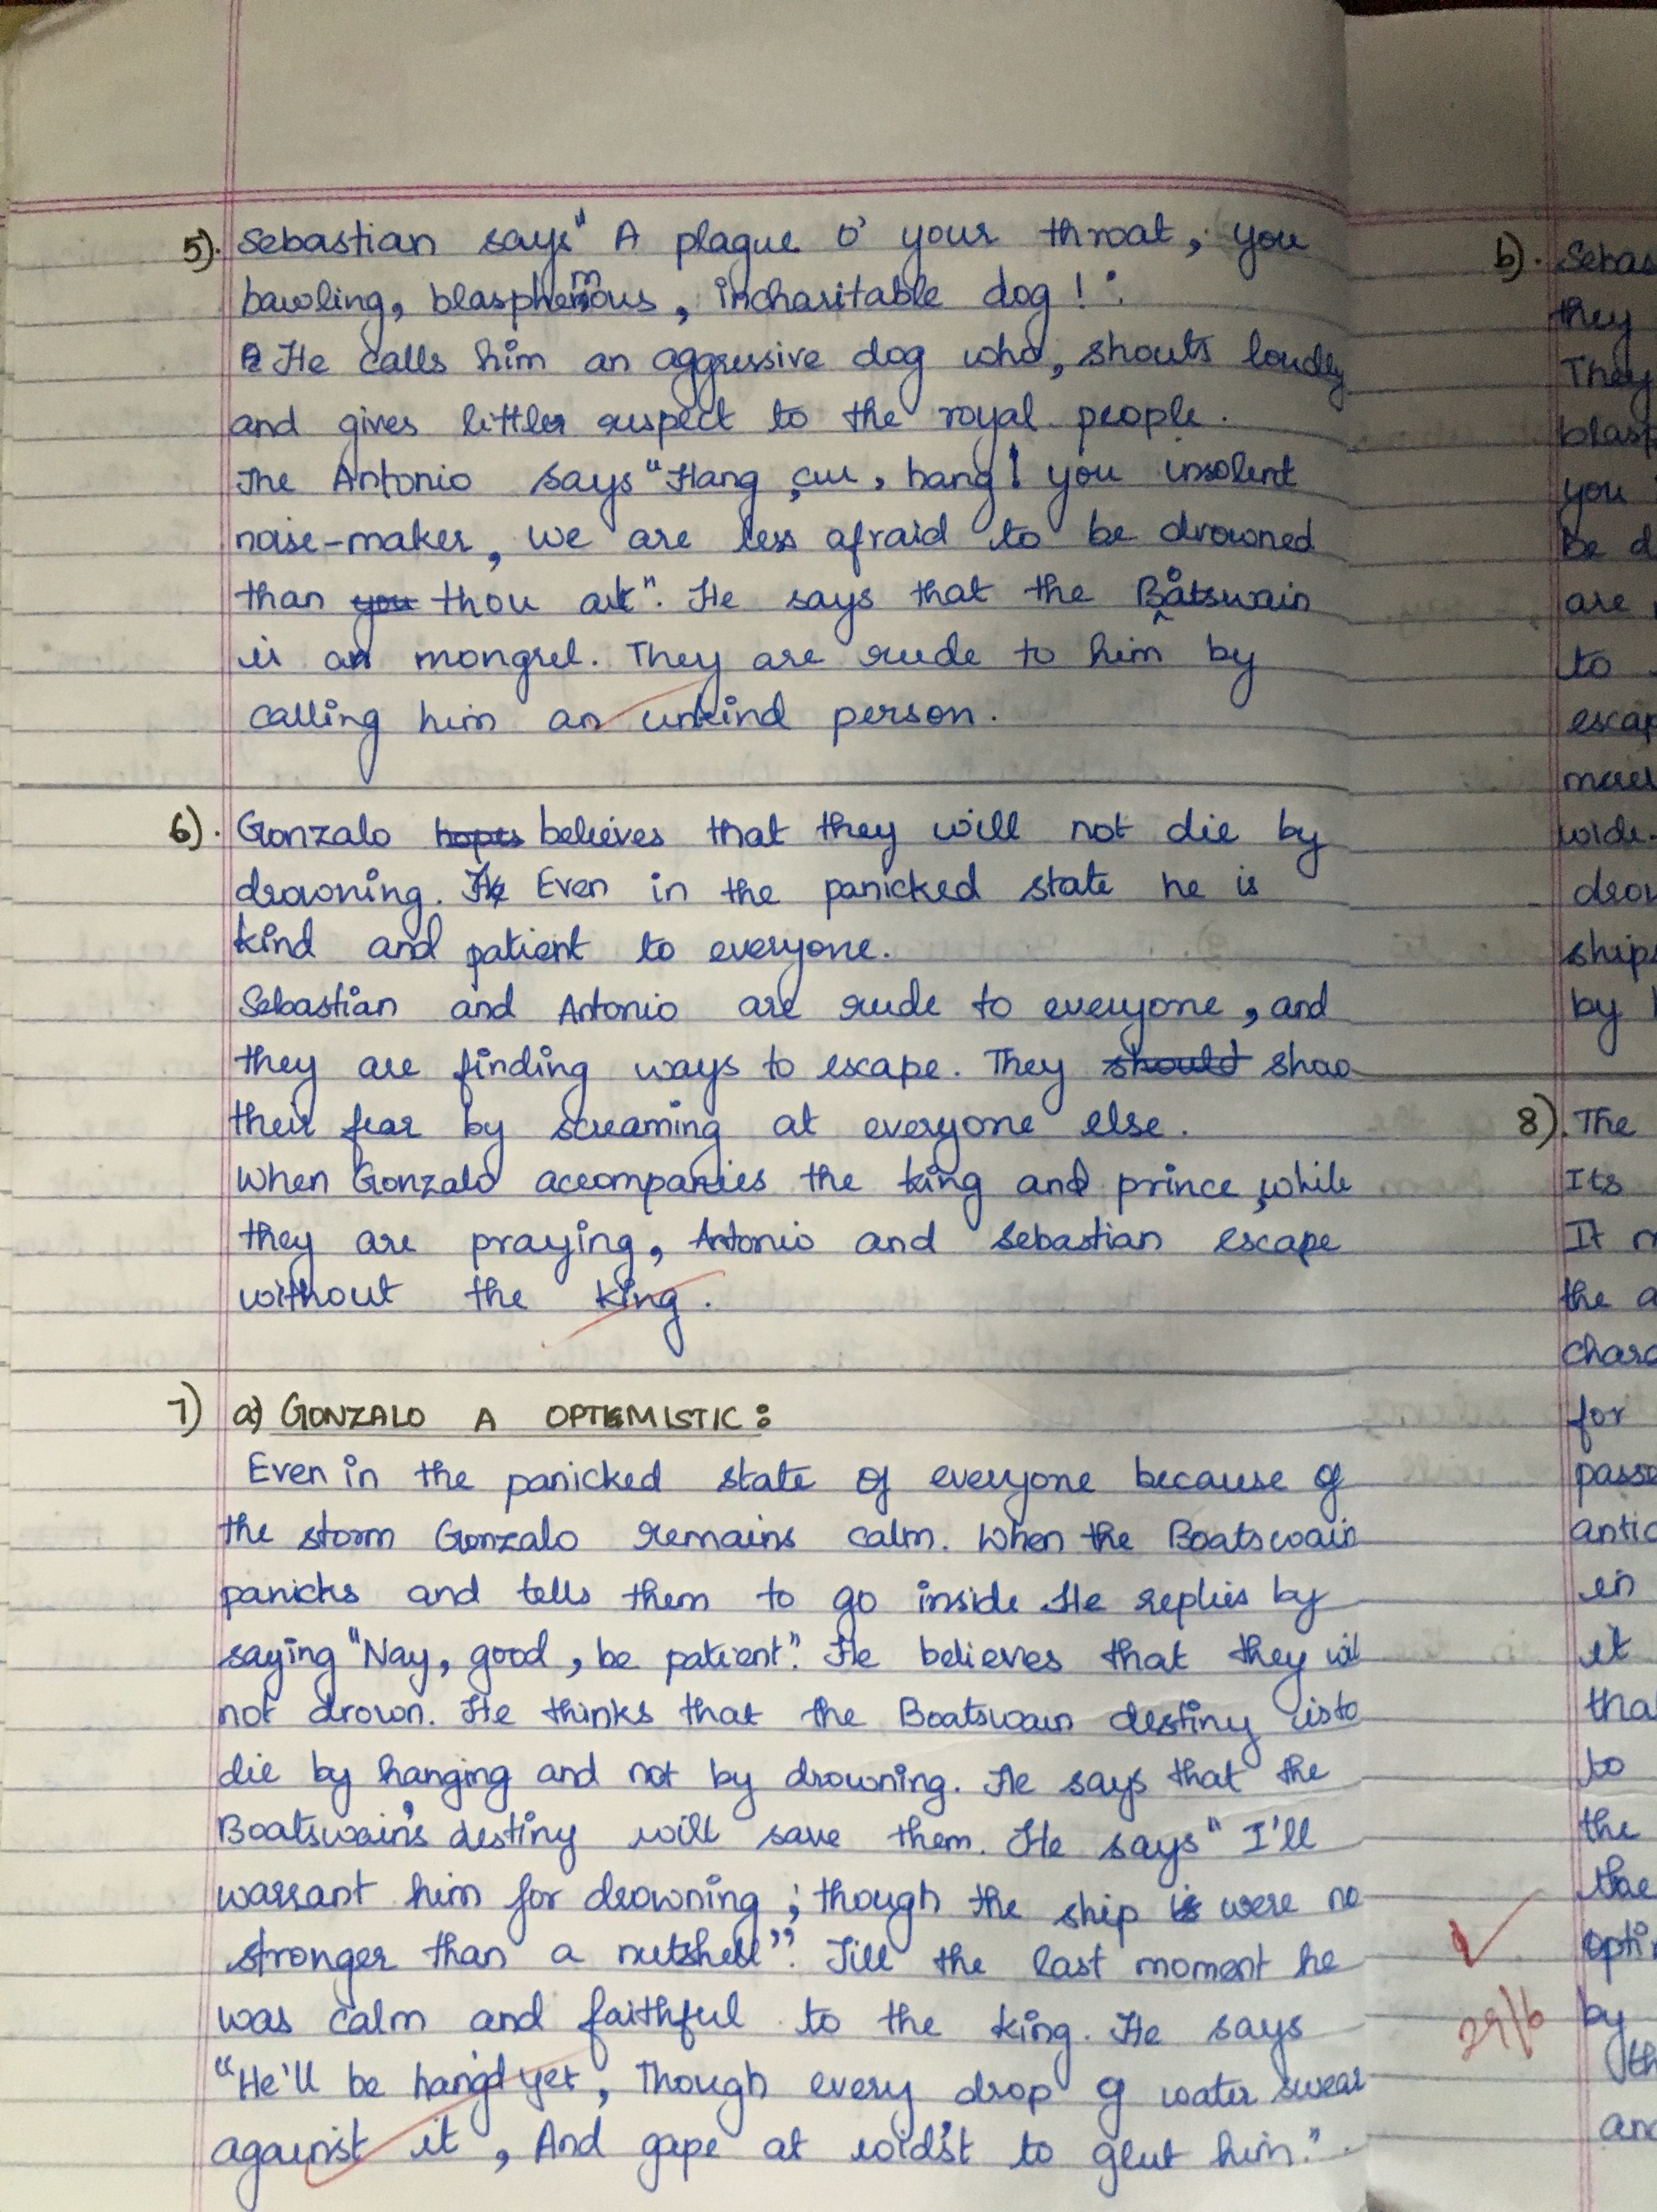 5). Sebastian says "A plague o' your throat, you
bawling, blasphemous, incharitable dog!".
He calls him an aggressive dog who, shouts loudly
and gives little respect to the royal people.
The Antonio says "Hang cur, hang! you insolent
noise-maker, we are less afraid to be drowned
than you thou art". He says that the Boatswain
is a mongrel. They are rude to him by
calling him an unkind person.
6). Gonzalo hopes believes that they will not die by
drowning. He Even in the panicked state he is
kind and patient to everyone.
Sebastian and Antonio are rude to everyone, and
they are finding ways to escape. They should show
their fear by screaming at everyone else.
When Gonzalo accompanies the king and prince, while
they are praying, Antonio and Sebastian escape
without the king.
7) a) GONZALO A OPTIMISTIC:
Even in the panicked state of everyone because of
the storm Gonzalo remains calm. When the Boatswain
panicks and tells them to go inside He replies by
saying "Nay, good, be patient". He believes that they will
not drown. He thinks that the Boatswain destiny is to
die by hanging and not by drowning. He says that the
Boatswain's destiny will save them. He says "I'll
warrant him for drowning; though the ship is were no
stronger than a nutshell". Till the last moment he
was calm and faithful to the king. He says
"He'll be hang'd yet, Though every drop of water swear
against it, And gape at wid'st to glut him".
b). Sebas
they
They
blasp
you
be d
are
to
escap
wide-
drow
ships
by
8). The
Its
It
the a
charac
for
passe
antic
in
it
tha
to
the
the
opti
29/6 by
th
and